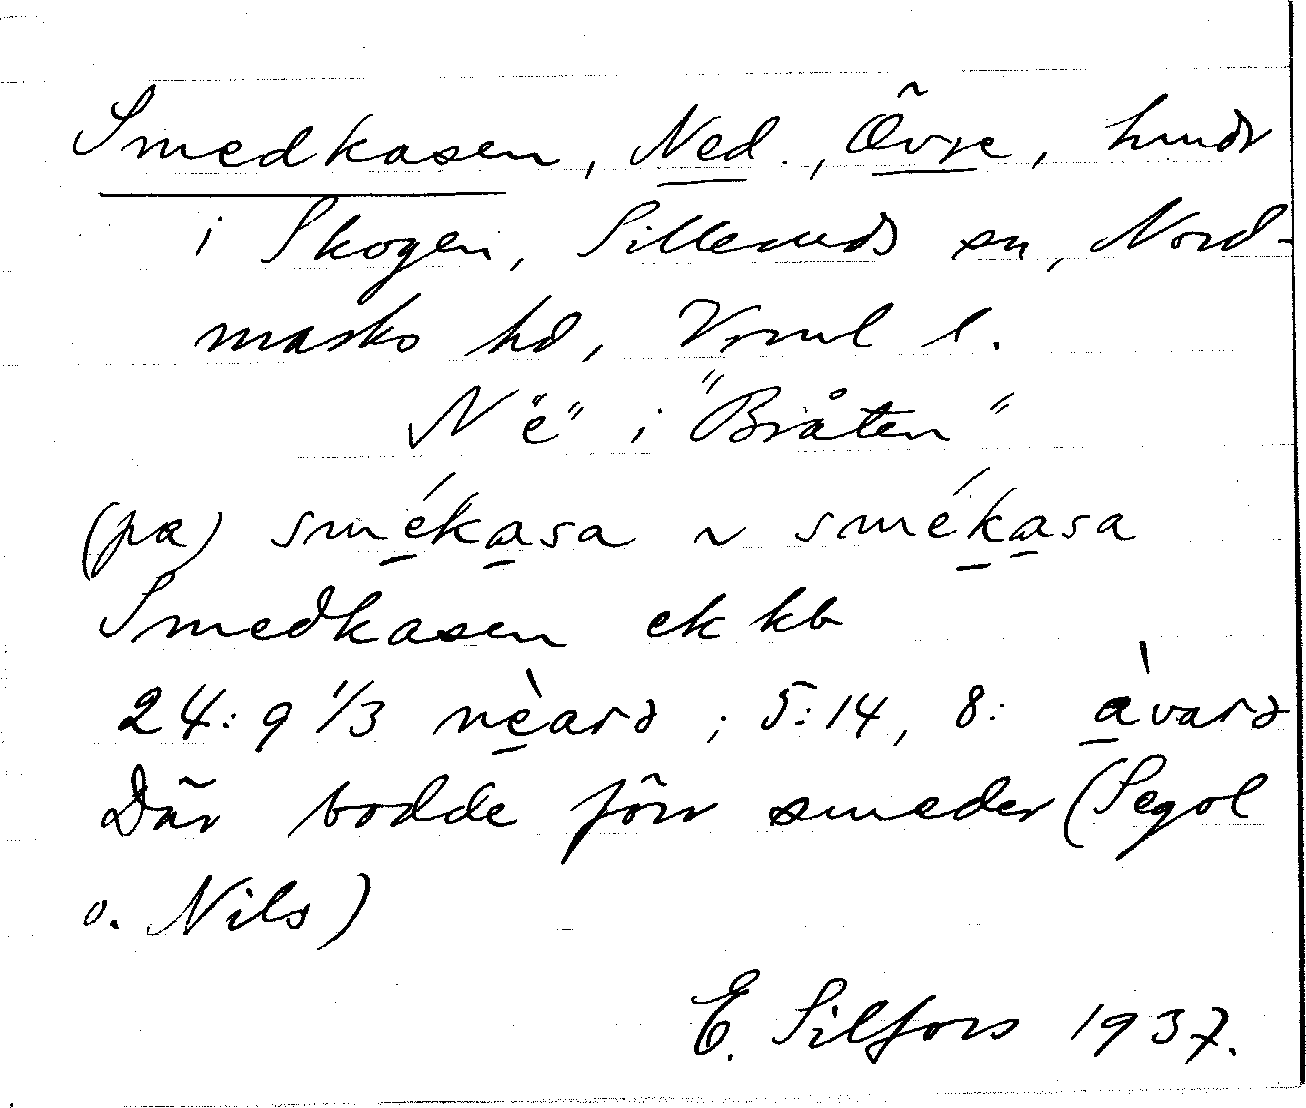 Smedkasen, Ned., Övre, hmdr
i Skogen, Silleruds sn, Nord-
marks hd, Vrml l.
N "e" i "Bråten"
(pæ) smékasa ~ smékasa
Smedkasen ek kb
24: 9 1/3 nèarə ; 5:14, 8: àvarə
Där bodde förr smeder (Segol
o. Nils)
E. Silfors 1937.